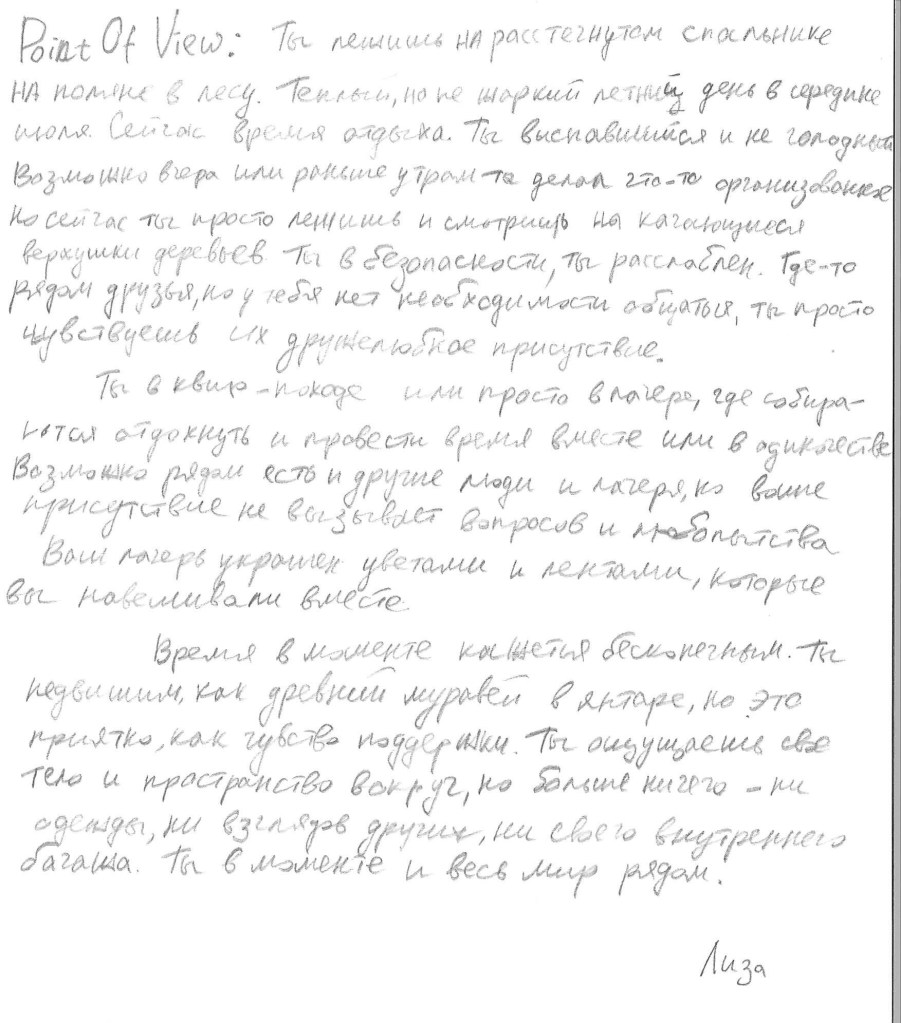 Point Of View: Ты лежишь на расстегнутом спальнике
на поляне в лесу. Теплый, но не жаркий летний день в середине
июля. Сейчас время отдыха. Ты выспавшийся и не голодный
Возможно вчера или раньше утром ты делал что-то организованное
но сейчас ты просто лежишь и смотришь на качающиеся
верхушки деревьев. Ты в безопасности, ты расслаблен. Где-то
рядом друзья, но у тебя нет необходимости общаться, ты просто
чувствуешь их дружелюбное присутствие.
Ты в квир-походе или просто в лагере, где собира-
ются отдохнуть и провести время вместе или в одиночестве
Возможно рядом есть и другие люди и лагеря, но ваше
присутствие не вызывает вопросов и любопытства
Ваш лагерь украшен цветами и лентами, которые
вы навешивали вместе.
Время в моменте кажется бесконечным. Ты
недвижим, как древний муравей в янтаре, но это
приятно, как чувство поддержки. Ты ощущаешь свое
тело и пространство вокруг, но больше ничего - ни
одежды, ни взглядов других, ни своего внутреннего
багажа. Ты в моменте и весь мир рядом.
Лиза